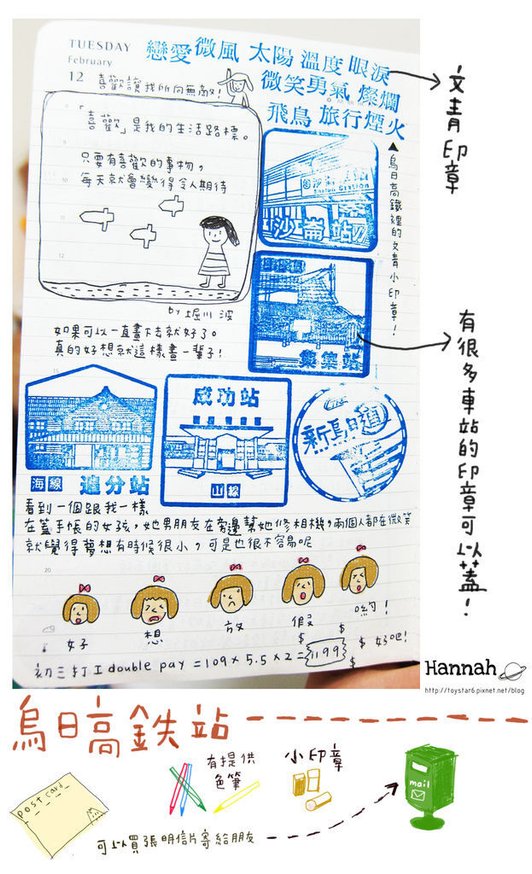 TUESDAY
February
12
戀愛 微風 太陽 溫度 眼淚
微笑勇氣 燦爛
飛鳥 旅行煙火
喜歡讓我所向無敵！
「喜歡」是我的生活路標。
只要有喜歡的事物，
每天就會變得令人期待
by 堀川 波
如果可以一直畫下去就好了。
真的好想就這樣畫一輩子！
▲烏日高鐵裡的文青小印章！
文青印章
沙崙站
集集站
有很多車站的印章可以蓋！
海線 追分站
成功站
山線
新烏日
看到一個跟我一樣
在蓋手帳的女孩，她男朋友在旁邊幫她修相機，兩個人都在微笑
就覺得夢想有時候很小，可是也很不容易呢
好 想 放 假 喲！
初三打工double pay = 109 × 5.5 × 2 = 1199
$ $ $ $ 好吧！
Hannah
http://toystar6.pixnet.net/blog
烏日高鉄站
post card
有提供
色筆
小印章
mail
可以買張明信片寄給朋友